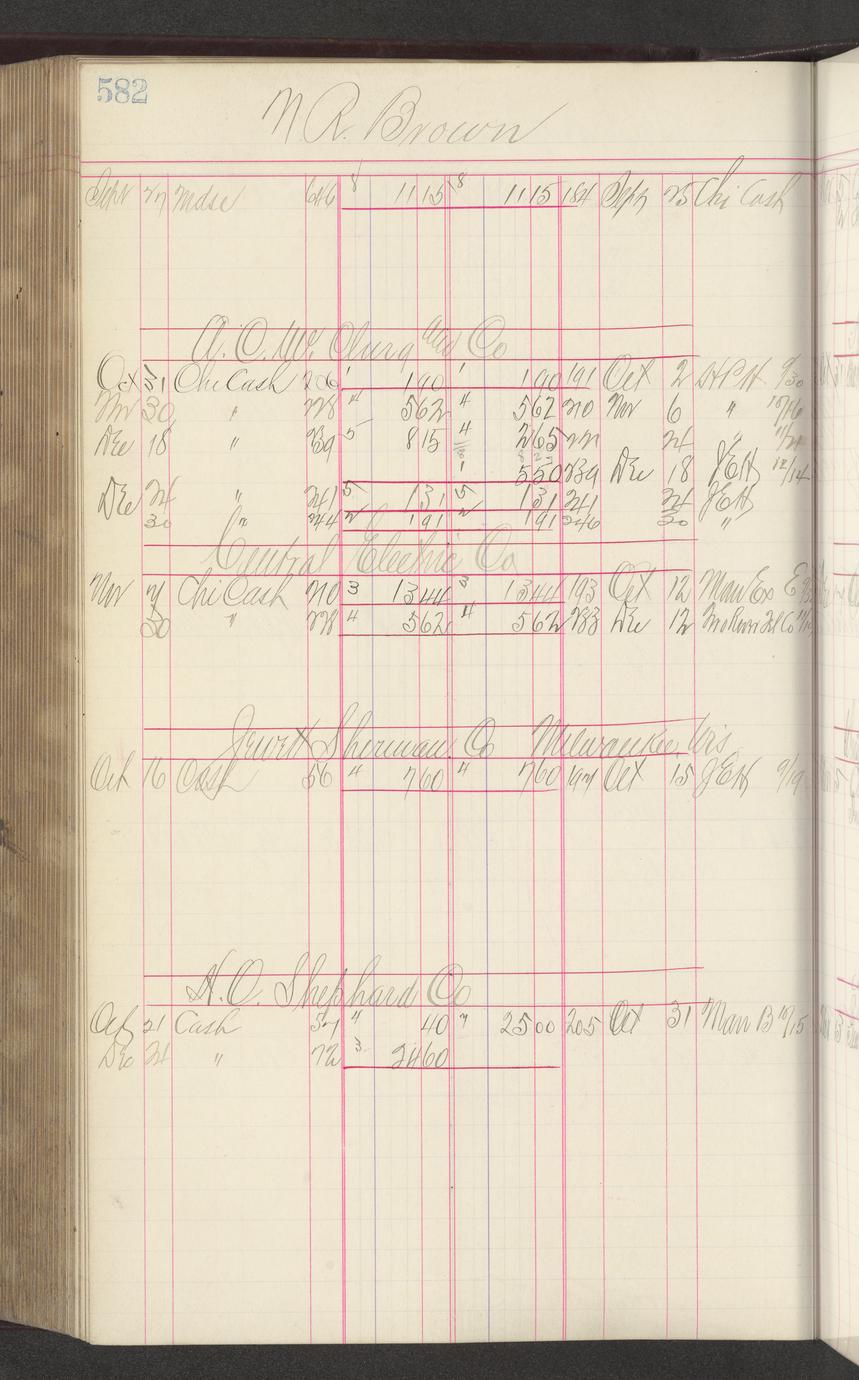 582
N R. Brown
Sept 27 Mdse 646 8 11 15 8 11 15 184 Sept 25 Chi Cash
A. C. Mc Clurg and Co
Oct 31 Chi Cash 206 1 1 90 1 1 90 191 Oct 2 9/30
Nov 30 " 228 4 5 62 4 5 62 210 Nov 6 "
Dec 18 " 239 5 8 15 4 2 65 24 "
1 5 50 239 Dec 18 JEH 12/14
Dec 24 " 241 5 1 31 5 1 31 241 24 JEH
30 " 244 2 1 91 2 1 91 246 30 "
Central Electric Co
Nov 7 Chi Cash 210 3 13 44 3 13 44 193 Oct 12 Man Ex
30 " 228 4 5 62 4 5 62 233 Dec 12
Jewett Sherman Co Milwaukee, Wis
Oct 16 Cash 56 4 7 60 4 7 60 197 Oct 15 JEH 9/19
H. O. Shephard Co
Oct 21 Cash 57 " 40 7 25 00 205 Oct 31 Man B 10/15
Dec 24 " 72 3 24 60